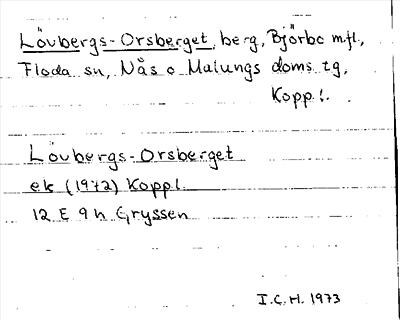 Lövbergs-Orsberget, berg, Björbo m.fl.,
Floda sn, Nås o Malungs doms. tg,
Kopp. l.
Lövbergs-Orsberget
ek (1972) Koppl.
12 E 9 h Gryssen
I.C.H. 1973